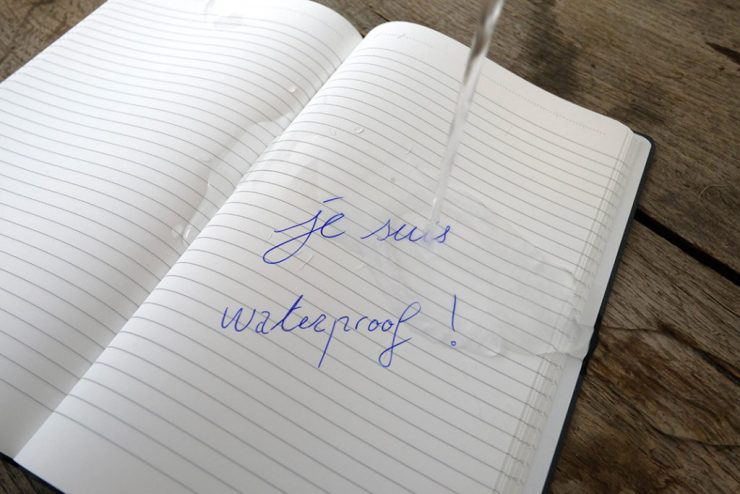 je suis
waterproof !